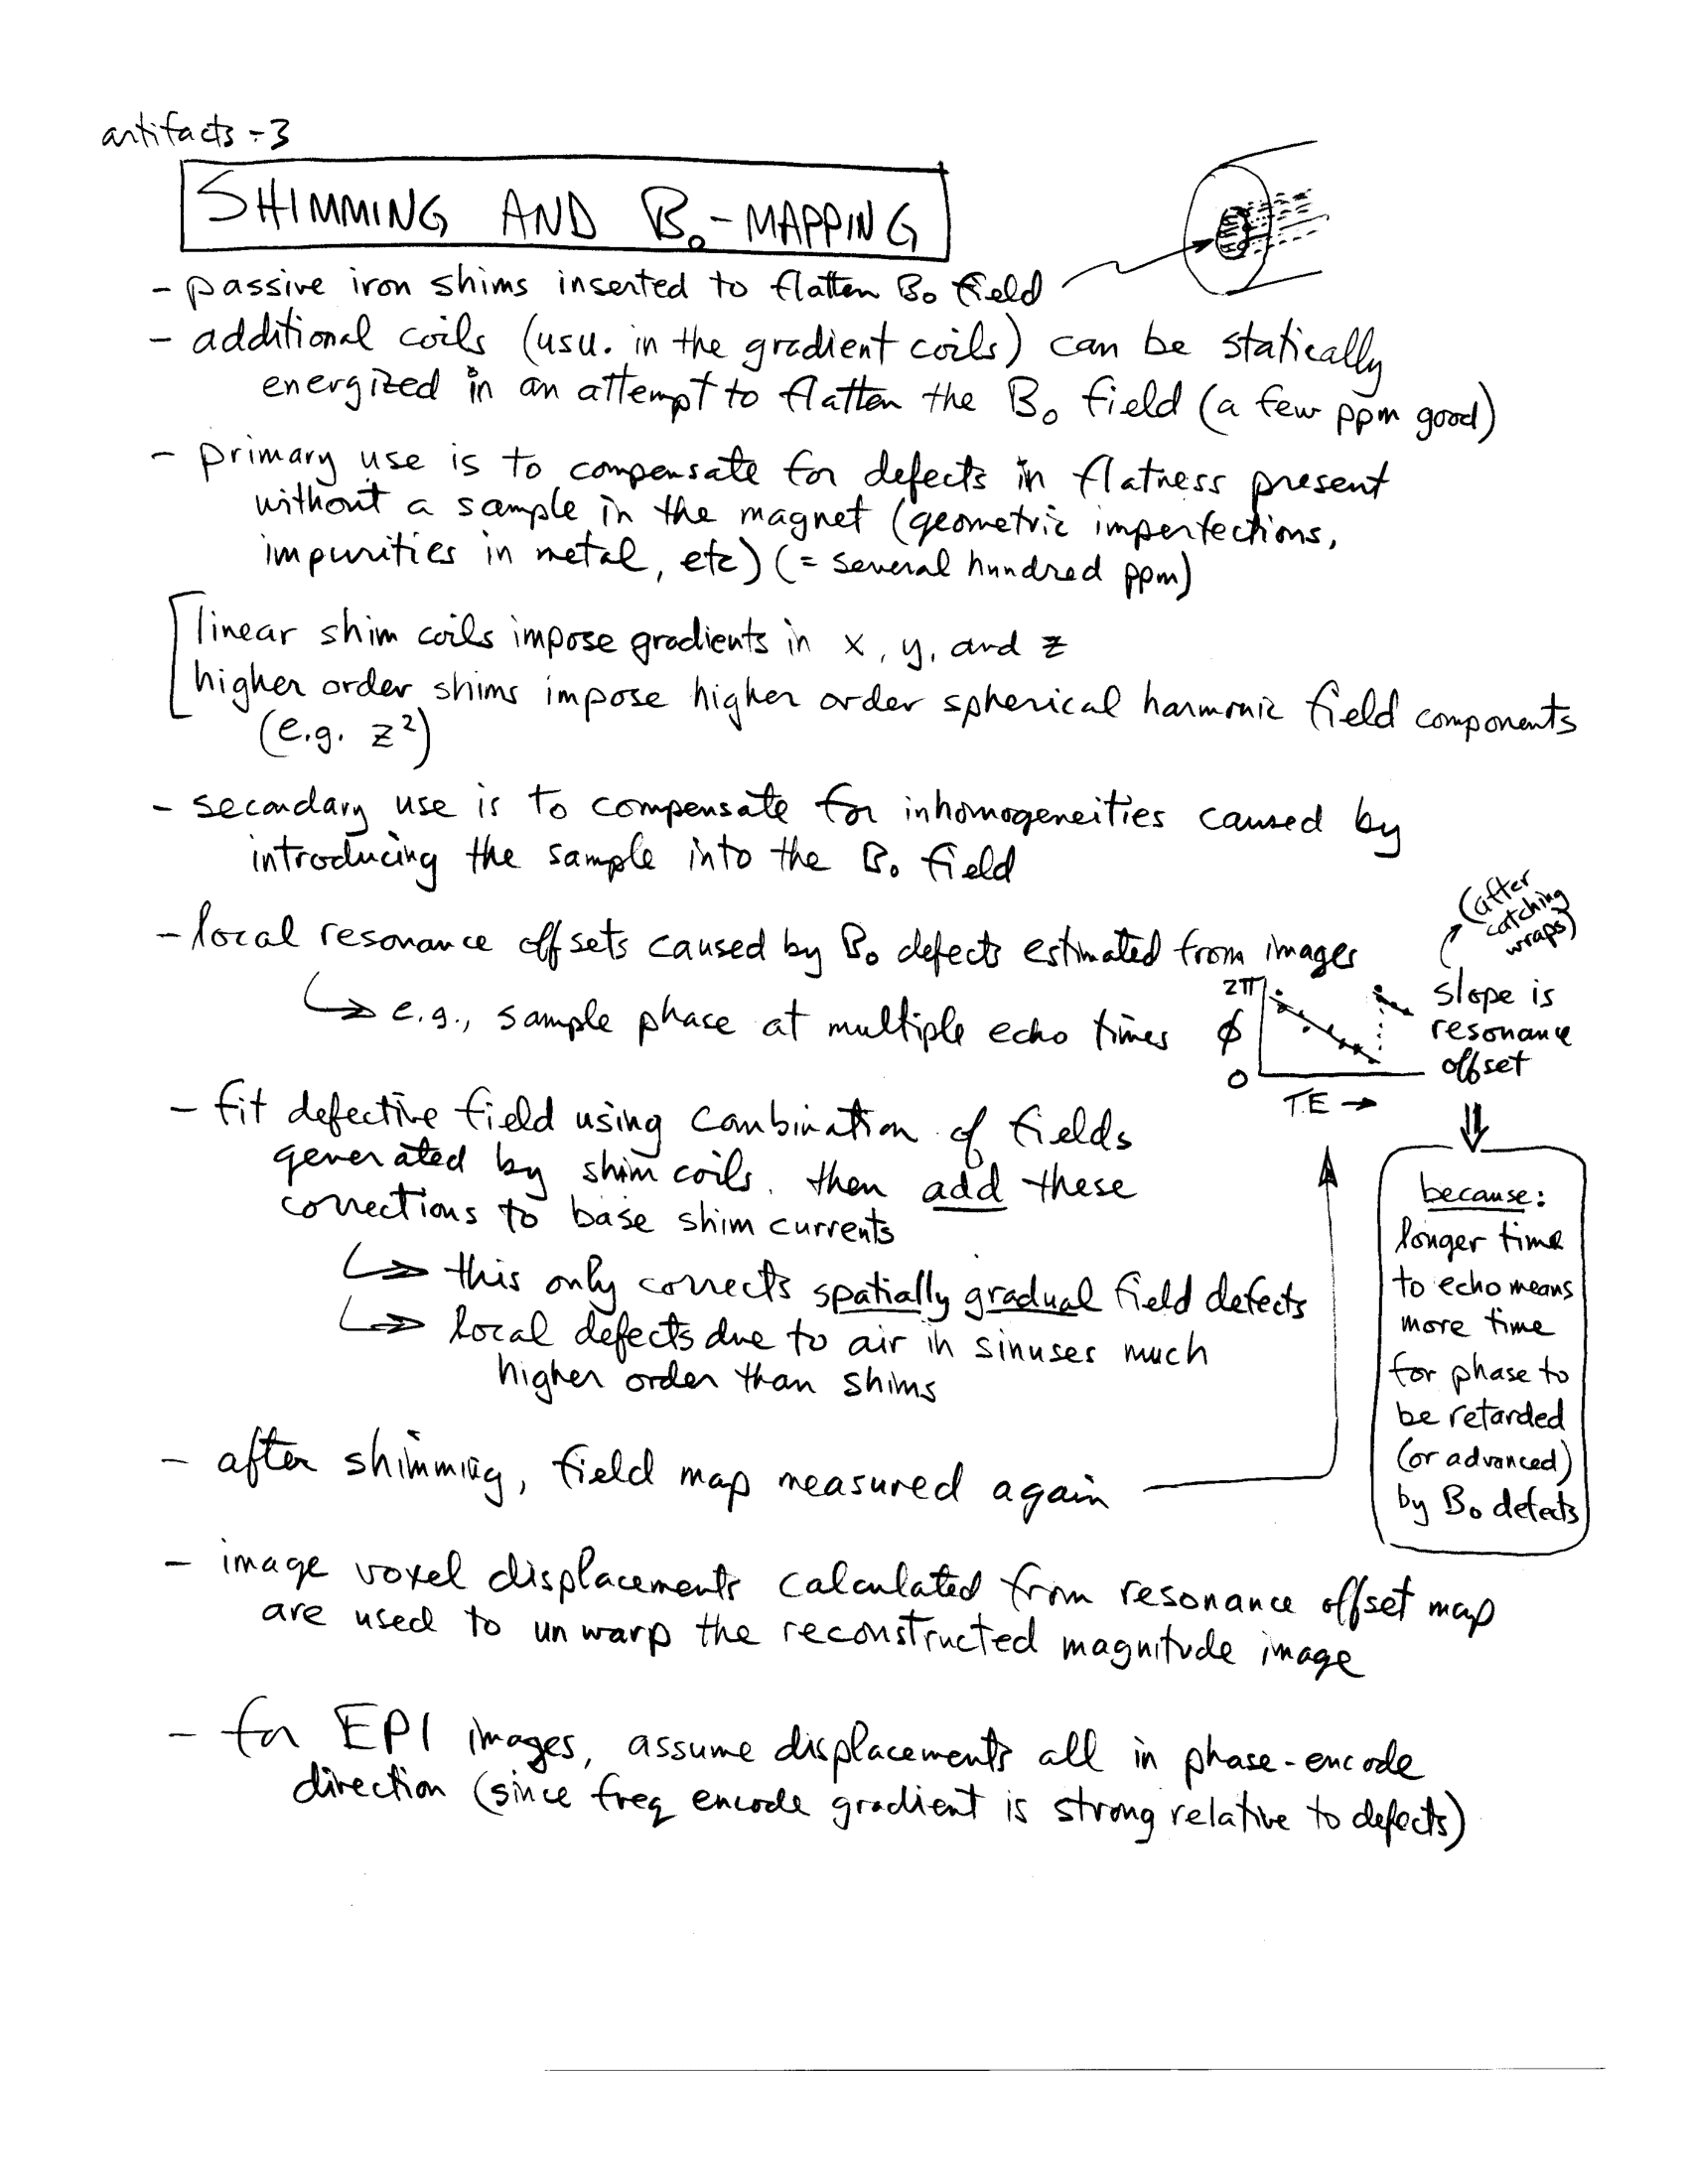 artifacts-3
SHIMMING AND B₀-MAPPING
- passive iron shims inserted to flatten B₀ field
- additional coils (usu. in the gradient coils) can be statically
energized in an attempt to flatten the B₀ field (a few ppm good)
- primary use is to compensate for defects in flatness present
without a sample in the magnet (geometric imperfections,
impurities in metal, etc) (= several hundred ppm)
linear shim coils impose gradients in x, y, and z
higher order shims impose higher order spherical harmonic field components
(e.g. z²)
- secondary use is to compensate for inhomogeneities caused by
introducing the sample into the B₀ field
- local resonance offsets caused by B₀ defects estimated from images
↳ e.g., sample phase at multiple echo times
2π
ϕ
0
TE →
(after
catching
wraps)
slope is
resonance
offset
because:
longer time
to echo means
more time
for phase to
be retarded
(or advanced)
by B₀ defects
- fit defective field using combination of fields
generated by shim coils. then add these
corrections to base shim currents
↳ this only corrects spatially gradual field defects
↳ local defects due to air in sinuses much
higher order than shims
- after shimming, field map measured again
- image voxel displacements calculated from resonance offset map
are used to unwarp the reconstructed magnitude image
- for EPI images, assume displacements all in phase-encode
direction (since freq encode gradient is strong relative to defects)